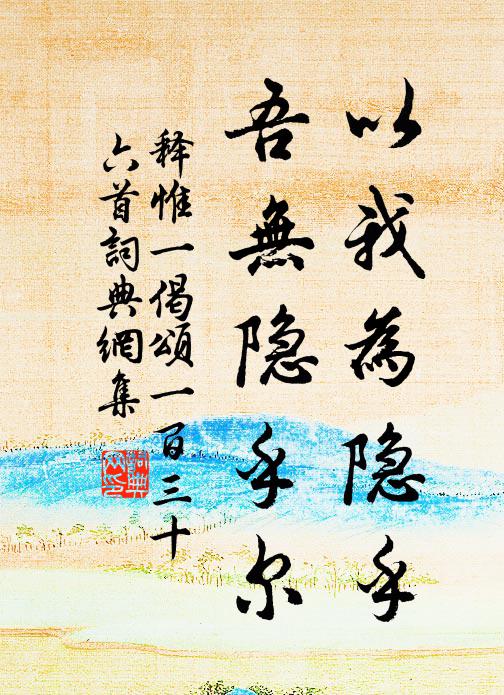 以我為隐乎
吾無隐乎尔
释惟一偈頌一百三十
六首詞典網集